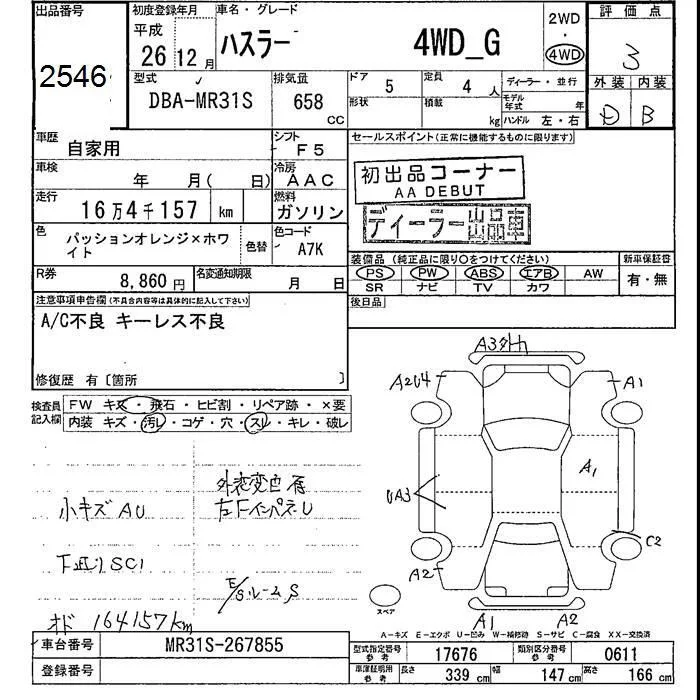 出品番号 初度登録年月 車名・グレード 評価点
2546
平成
26 12月 ハスラー 4WD_G 2WD・4WD 3
型式 排気量 ドア 定員 ディーラー・並行 外装 内装
DBA-MR31S 658 CC 5 4人 D B
形状 積載 kg モデル年式 年
ハンドル 左・右
車歴 自家用 シフト F5 セールスポイント(正常に機能するものに限ります)
車検 年 月( 日) 冷房 AAC
初出品コーナー
AA DEBUT
走行 16万4千157 km 燃料 ガソリン
ディーラー出品車
色 パッションオレンジ×ホワイト 色替 色コード A7K
装備品(純正品に限り○をつけてください) 新車保証書
PS PW ABS エアB AW 有・無
SR ナビ TV カワ
R券 8,860円 名変通知期限 月 日
後日品
注意事項申告欄(不具合内容等は具体的に記入して下さい)
A/C不良 キーレス不良
修復歴 有〔箇所 〕
検査員記入欄
FW キズ・飛石・ヒビ割・リペア跡・×要
内装 キズ・汚レ・コゲ・穴・スレ・キレ・破レ
A3
A2 A1
A1
UA3
C2
A2
A1 A2
スペア
小キズAU
下廻りSC1
オド 164157km
左FインパネU
E/Gルーム S
A-キズ E-エクボ U-凹み W-補修跡 S-サビ C-腐食 XX-交換済
車台番号 MR31S-267855
登録番号
型式指定番号 参考 17676 類別区分番号 参考 0611
車庫証明用 参考 長さ 339cm 幅 147cm 高さ 166cm